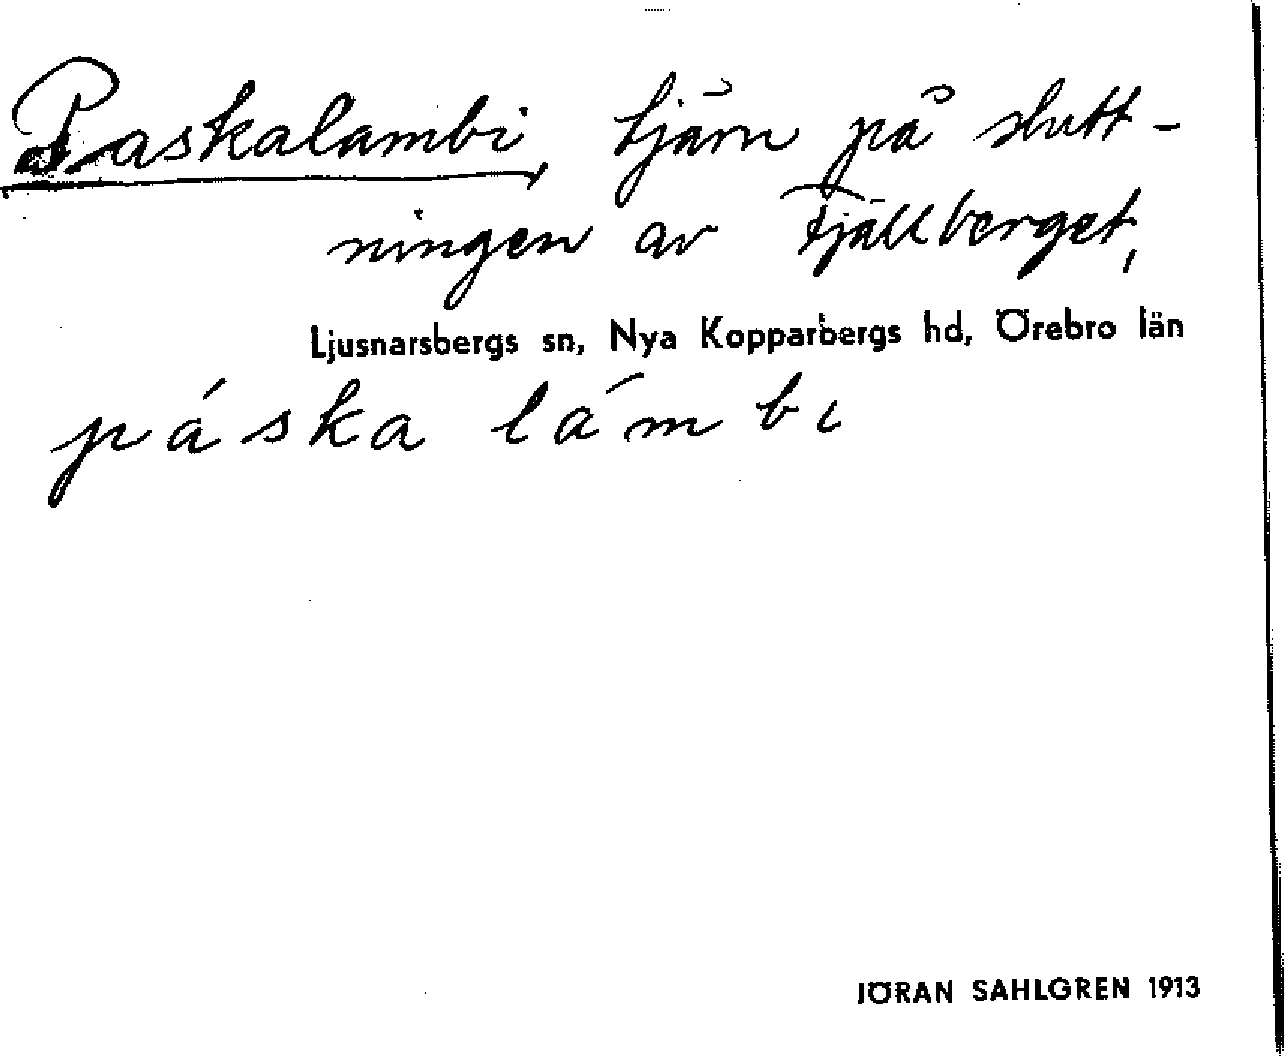 Paskalambi, tjärn på slutt-
ningen av Fjällberget,
Ljusnarsbergs sn, Nya Kopparbergs hd, Örebro län
páska lámbi
JÖRAN SAHLGREN 1913